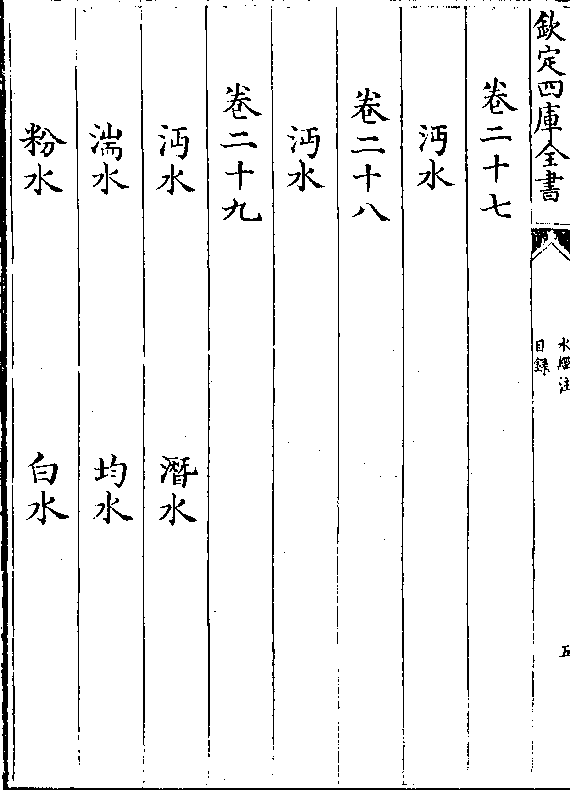 欽定四庫全書
水經注
目錄
五
卷二十七
沔水
卷二十八
沔水
卷二十九
沔水 潛水
湍水 均水
粉水 白水